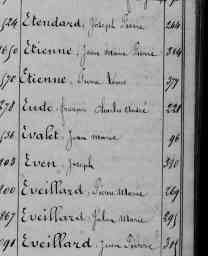 524 Etendard, Joseph Pierre 244
Etienne, Jean Marie Pierre 264
Etienne, 377
278 Eude, Charles André 228
536 Evalet, Jean Marie 96
Even, Joseph 350
100 Eveillard, Pierre Marie 269
867 Eveillard, Julien Marie 295
Eveillard, Jean Pierre